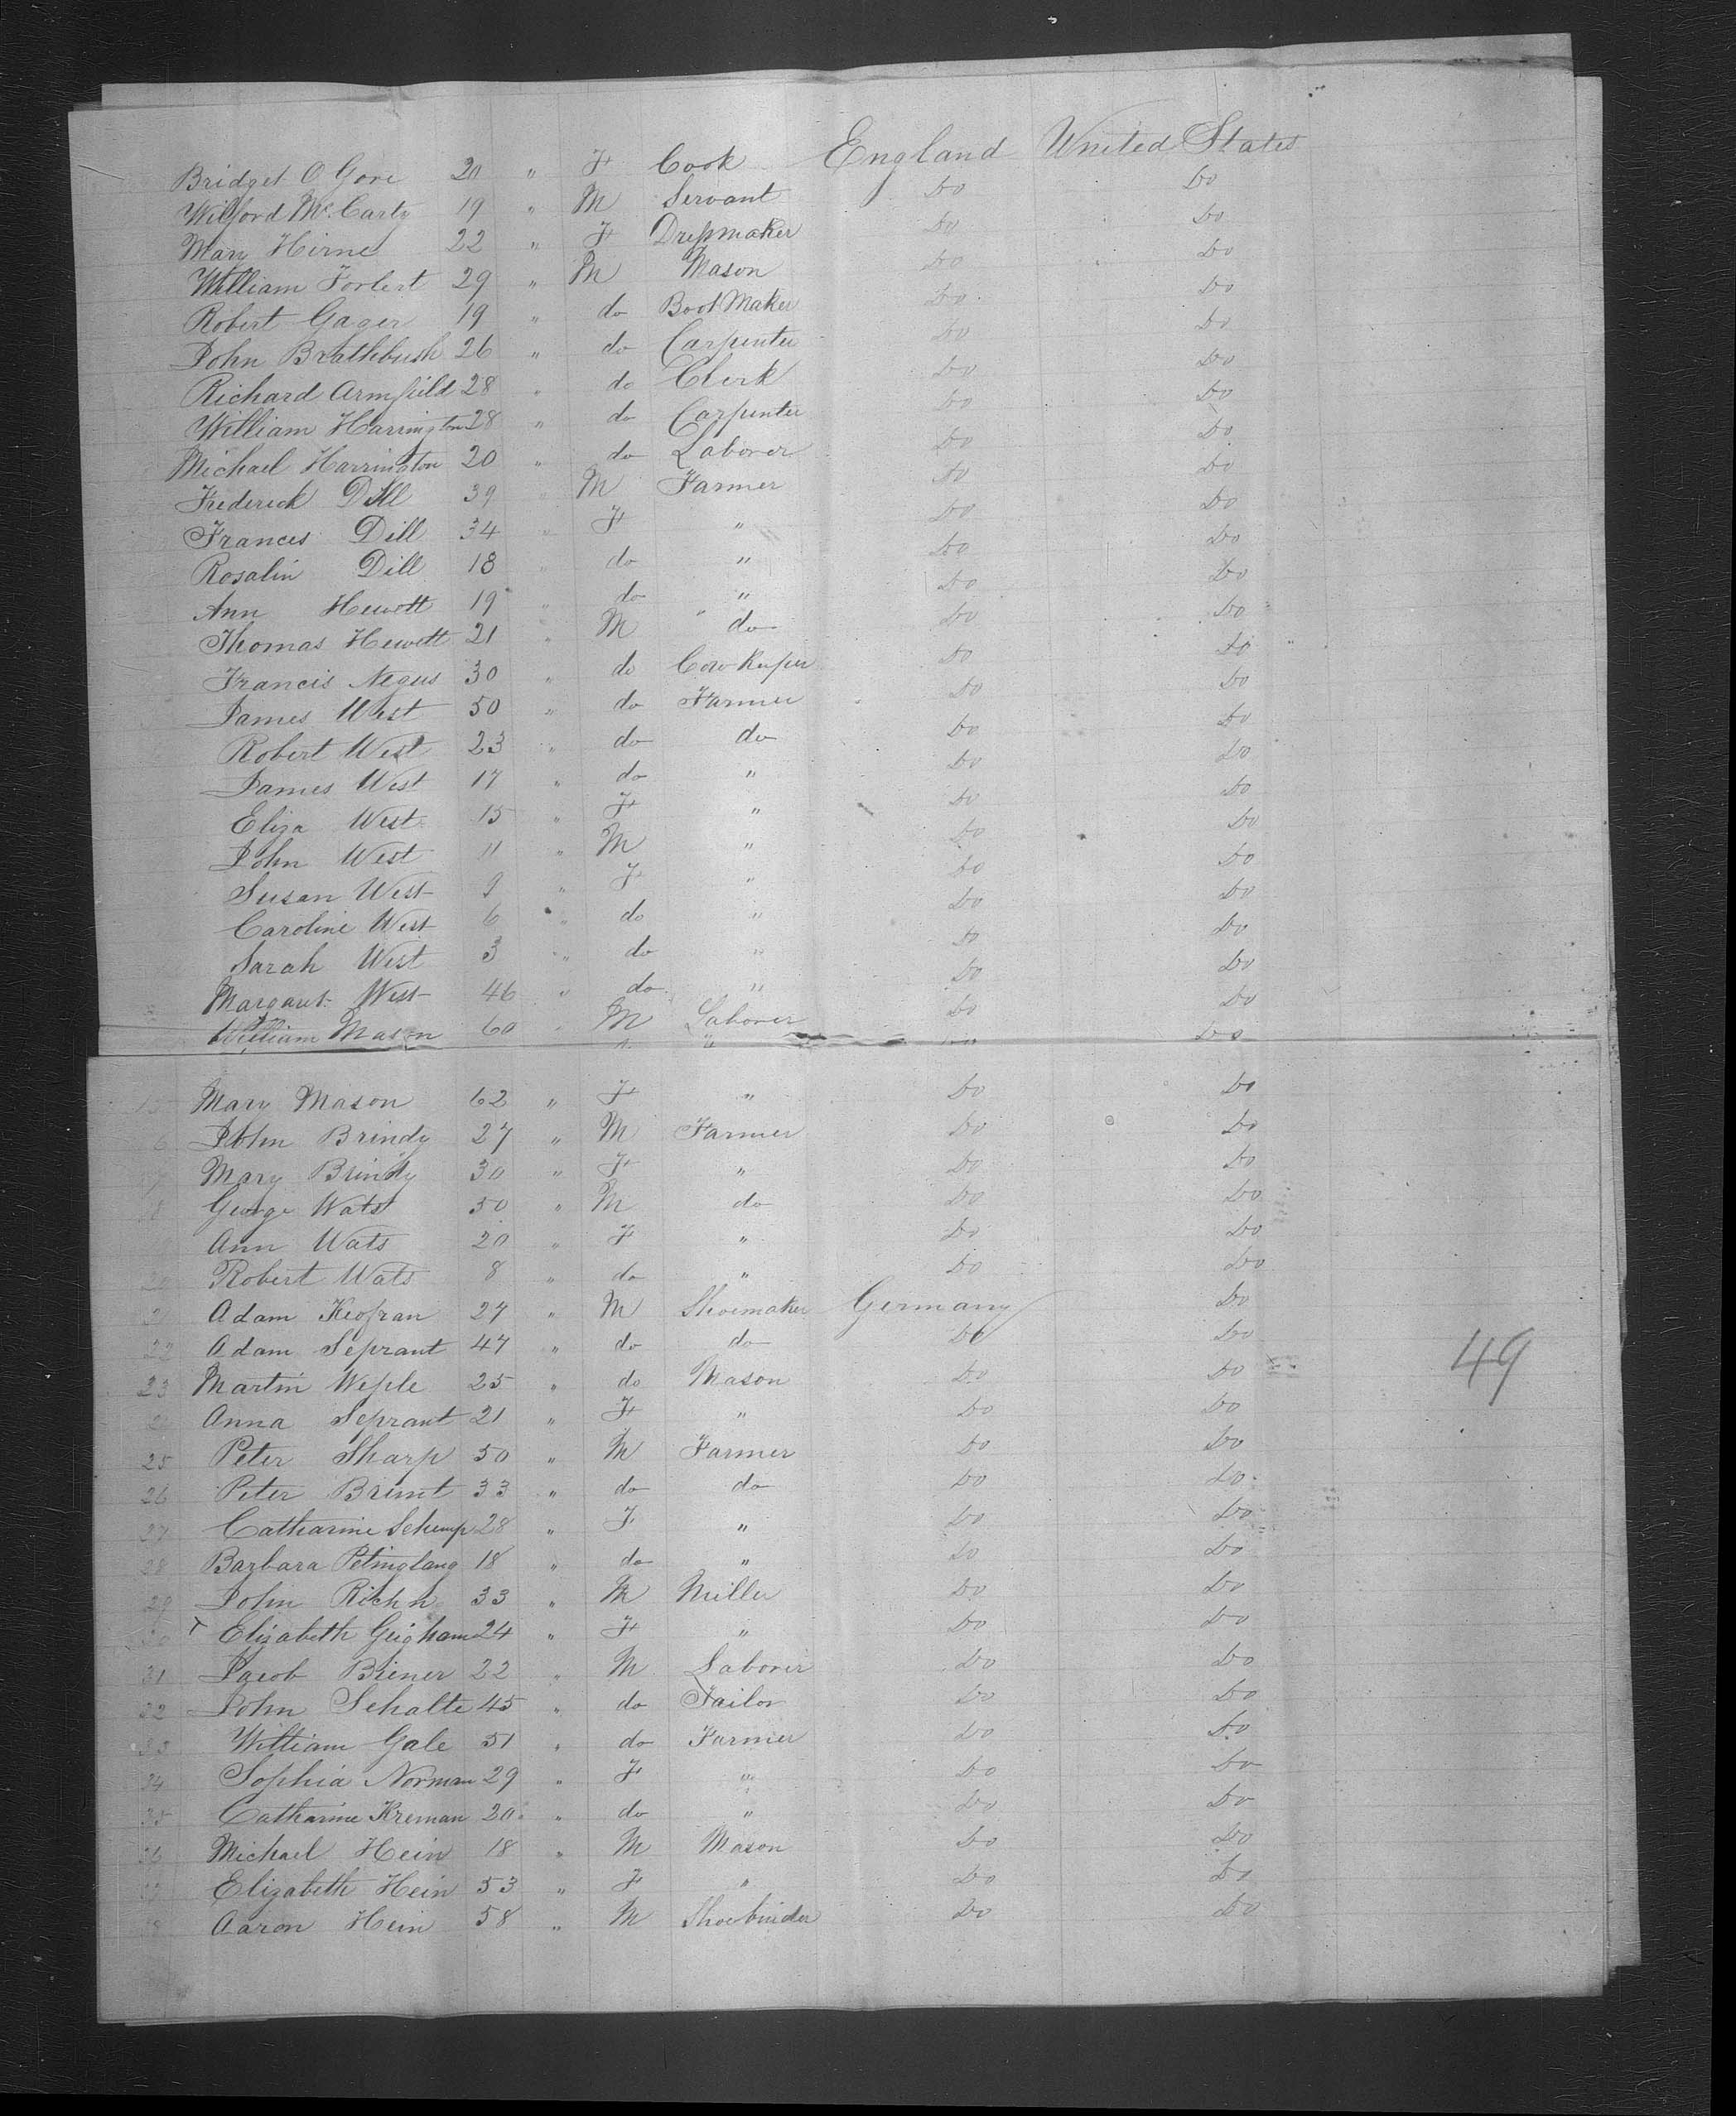 Bridget O Gore 20 " F Cook England United States
Wilford McCarty 19 " M Servant Do Do
Mary Hirne 22 " F Dressmaker Do Do
William Forbert 29 " M Mason Do Do
Robert Gager 19 " do Boot Maker Do Do
John Brathbush 26 " do Carpenter Do Do
Richard Armfield 28 " do Clerk Do Do
William Harrington 28 " do Carpenter Do Do
Michael Harrington 20 " do Laborer Do Do
Frederick Dill 39 " M Farmer Do Do
Frances Dill 34 " F " Do Do
Rosalin Dill 18 " do " Do Do
Ann Hewett 19 " do " Do Do
Thomas Hewett 21 " M " do Do Do
Francis Negus 30 " do Cow Keeper Do Do
James West 50 " do Farmer Do Do
Robert West 23 " do do Do Do
James West 17 " do " Do Do
Eliza West 15 " F " Do Do
John West 11 " M " Do Do
Susan West 9 " F " Do Do
Caroline West 6 " do " Do Do
Sarah West 3 " do " Do Do
Margaret West 46 " do " Do Do
William Mason 60 " M Laborer Do Do
15 Mary Mason 62 " F " Do Do
6 John Brindy 27 " M Farmer Do Do
17 Mary Brindy 30 " F " Do Do
18 George Wats 50 " M do Do Do
Ann Wats 20 " F " Do Do
20 Robert Wats 8 " do " Do Do
21 Adam Keofran 27 " M Shoemaker Germany Do
22 Adam Seprant 47 " do do Do Do
49
23 Martin Weple 25 " do Mason Do Do
24 Anna Seprant 21 " F " Do Do
25 Peter Sharp 50 " M Farmer Do Do
26 Peter Brimt 33 " do do Do Do
27 Catharine Schemp 28 " F " Do Do
28 Barbara Petinglang 18 " do " Do Do
29 John Richh 33 " M Miller Do Do
30 Elizabeth Geigham 24 " F " Do Do
31 Jacob Biener 22 " M Laborer Do Do
32 John Schalte 45 " do Tailor Do Do
33 William Gale 51 " do Farmer Do Do
34 Sophia Norman 29 " F " Do Do
35 Catharine Kreman 20 " do " Do Do
36 Michael Hein 18 " M Mason Do Do
37 Elizabeth Hein 53 " F " Do Do
38 Aaron Hein 58 " M Shoebinder Do Do